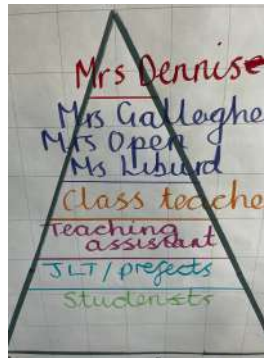 Mrs Dennis
Mrs Gallaghe
Mrs Open
Ms Liburd
Class teache
Teaching
assistant
JLT/prefects
Students